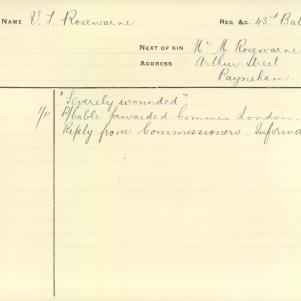 NAME V. F. Rosewarne. REG &C. 43rd Bat
NEXT OF KIN Mr M. Rosewarne
ADDRESS Arthur Street
Payneham.
"Severely wounded"
P/Cable forwarded Commrs London.
Reply from Commissioners. Informa